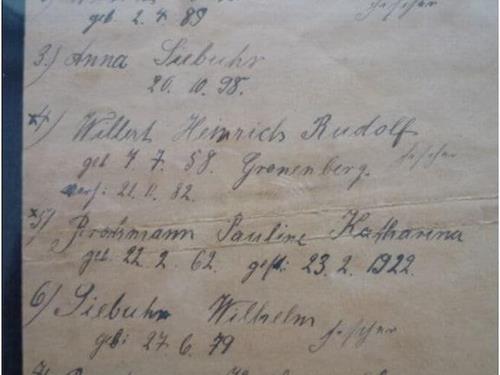 geb 2. 4. 89
3.) Anna Siebuhr
20. 10. 98.
4) Willert Heinrich Rudolf
geb 7. 7. 58. Gronenberg.
21. 11. 82.
5) Pauline Katharina
geb. 22. 2. 62. gest: 23. 2. 1922.
6) Siebuhr Wilhelm
geb: 27. 6. 79